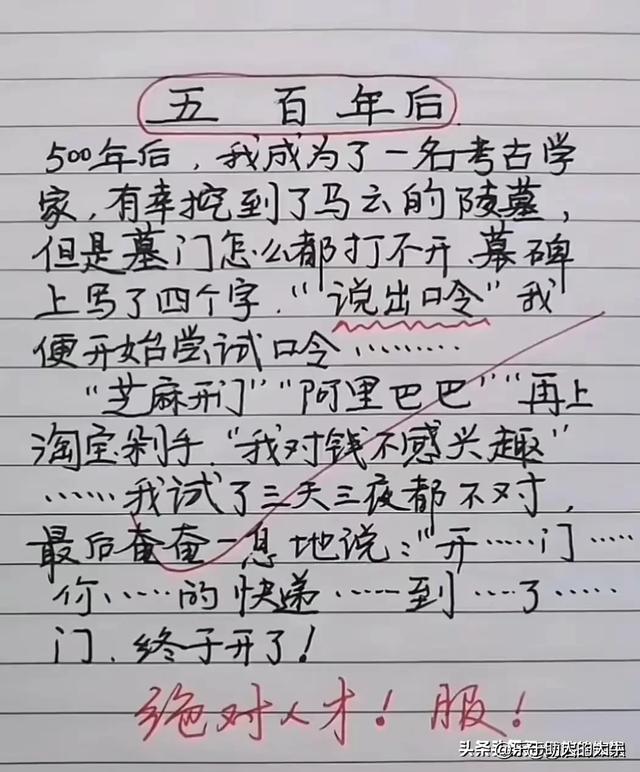 五百年后
500年后，我成为了一名考古学
家，有幸挖到了马云的陵墓，
但是墓门怎么都打不开、墓碑
上写了四个字．“说出口令”我
便开始尝试口令………
“芝麻开门”“阿里巴巴”“再上
淘宝剁手．“我对钱不感兴趣”
……我试了三天三夜都不对，
最后奄奄一息地说：“开……门……
你……的快递……到…了……
门、终于开了！
绝对人才！服！
头条